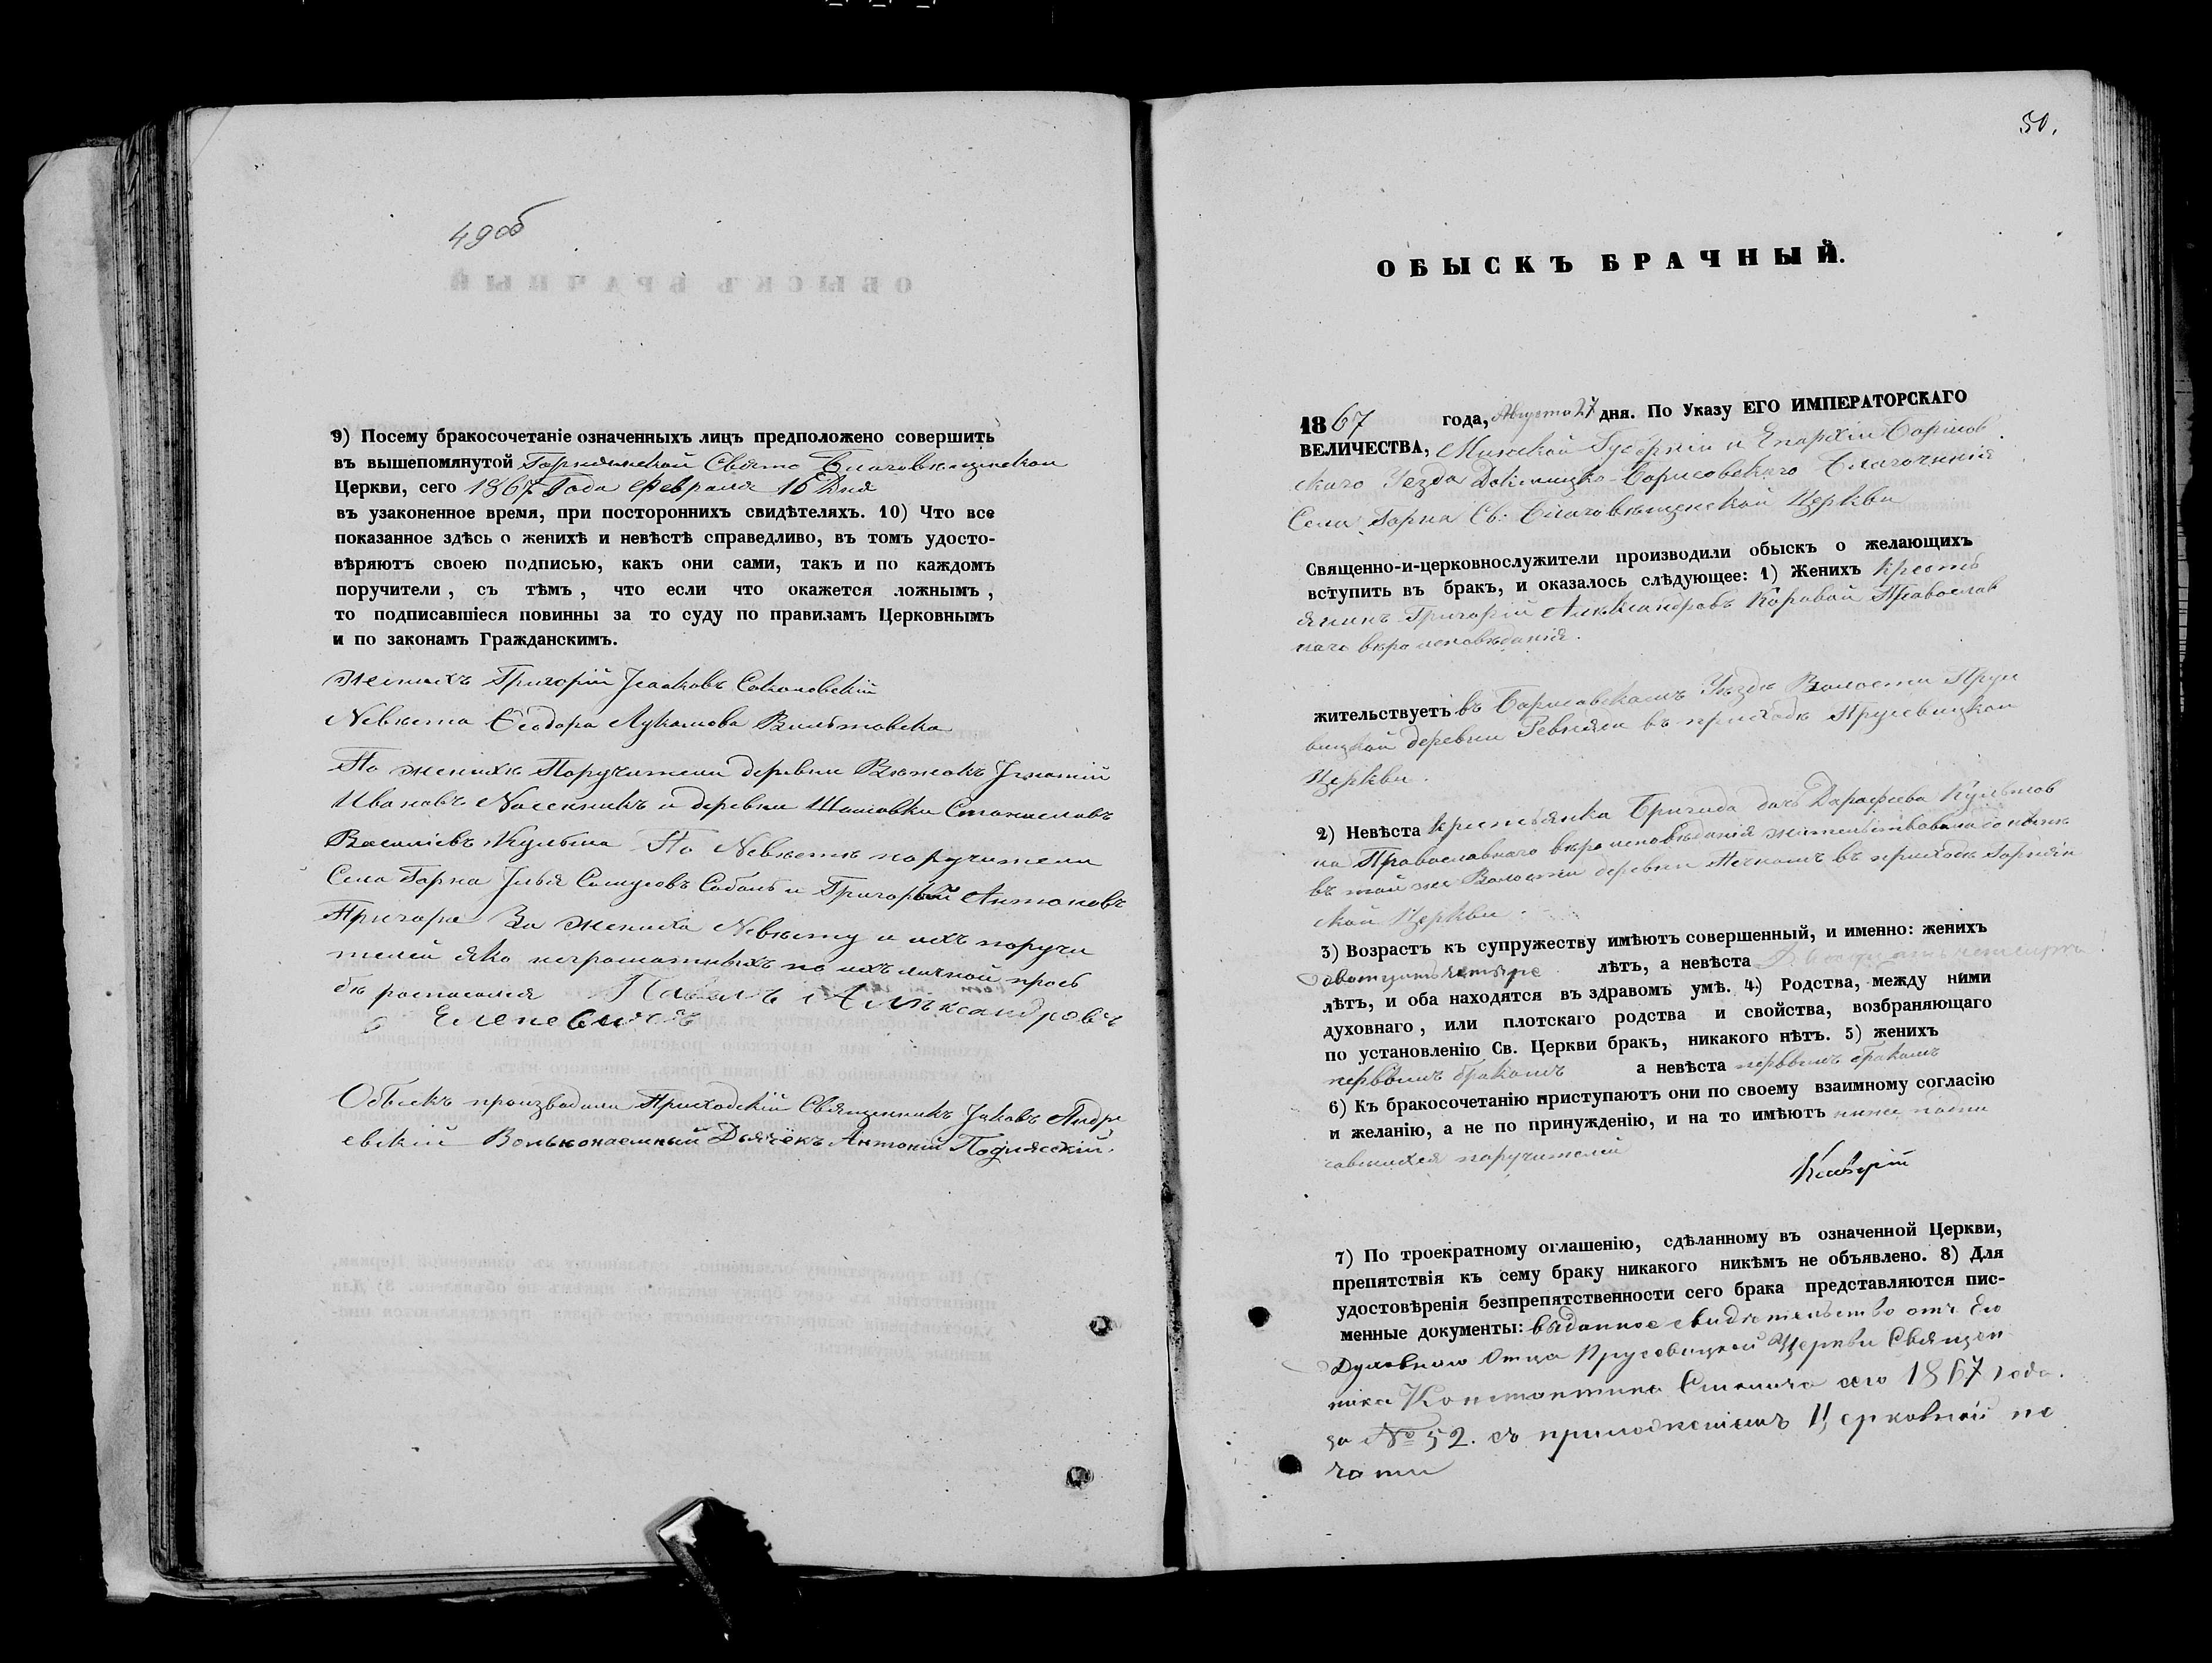 49об
9) Посему бракосочетаніе означенныхъ лицъ предположено совершить
въ вышепомянутой Горнянской Свято Благовѣщенской
Церкви, сего 1867 Года Февраля 16 Дня
въ узаконенное время, при постороннихъ свидѣтеляхъ. 10) Что все
показанное здѣсь о женихѣ и невѣстѣ справедливо, въ томъ удосто-
вѣряютъ своею подписью, какъ они сами, такъ и по каждомъ
поручители, съ тѣмъ, что если что окажется ложнымъ,
то подписавшіеся повинны за то суду по правиламъ Церковнымъ
и по законамъ Гражданскимъ.
Женихъ Григорій Соколовскій
Невѣста Ѳеодора
По женихѣ Поручители деревни Игнатій
Ивановъ и деревни Станиславъ
Василіевъ По Невѣстѣ поручители
Села Горна Илья и Григорій Антоновъ
За Жениха Невѣсту и ихъ поручи
телей яко неграмотныхъ по ихъ личной прось
бѣ росписался Павелъ Александровъ
Еленевичъ
Обыскъ производили Приходскій Священникъ Іаковъ Андре
евскій Вольнонаемный Дьячекъ Антоній
50.
ОБЫСКЪ БРАЧНЫЙ.
1867 года, Августа 27 дня. По Указу ЕГО ИМПЕРАТОРСКАГО
ВЕЛИЧЕСТВА, Минской Губерніи и Епархіи Борисов
скаго Уезда Докшицко-Борисовскаго Благочинія
Села Горна Св: Благовѣщенской Церкви
Священно-и-церковнослужители производили обыскъ о желающихъ
вступить въ бракъ, и оказалось слѣдующее: 1) Женихъ Кресть
янинъ Григорій Александровъ Каравай Православ
наго вѣроисповѣданія.
жительствуетъ въ Борисовскомъ Уѣздѣ Волости Прус
вицкой деревни въ приходѣ Прусевицкой
Церкви.
2) Невѣста Крестьянка Бригида дочь Дарафеева
на Православнаго вѣроисповѣданія жительствовала до нынѣ
въ той же Волости деревни въ приходѣ Горнян
ской Церкви
3) Возрастъ къ супружеству имѣютъ совершенный, и именно: женихъ
двотцать четыре лѣтъ, а невѣста
лѣтъ, и оба находятся въ здравомъ умѣ. 4) Родства, между ними
духовнаго, или плотскаго родства и свойства, возбраняющаго
по установленію Св. Церкви бракъ, никакого нѣтъ. 5) женихъ
первымъ бракомъ а невѣста первымъ бракомъ
6) Къ бракосочетанію приступаютъ они по своему взаимному согласію
и желанію, а не по принужденію, и на то имѣютъ ниже подпи
савшихся поручителей
7) По троекратному оглашенію, сдѣланному въ означенной Церкви,
препятствія къ сему браку никакого никѣмъ не объявлено. 8) Для
удостовѣренія безпрепятственности сего брака представляются пис-
менные документы: выданное свидѣтельство отъ Его
Духовного Отца Прусевицкой Церкви Священ
ника Константина сего 1867 года.
за № 52. съ приложеніемъ Церковной пе
чати